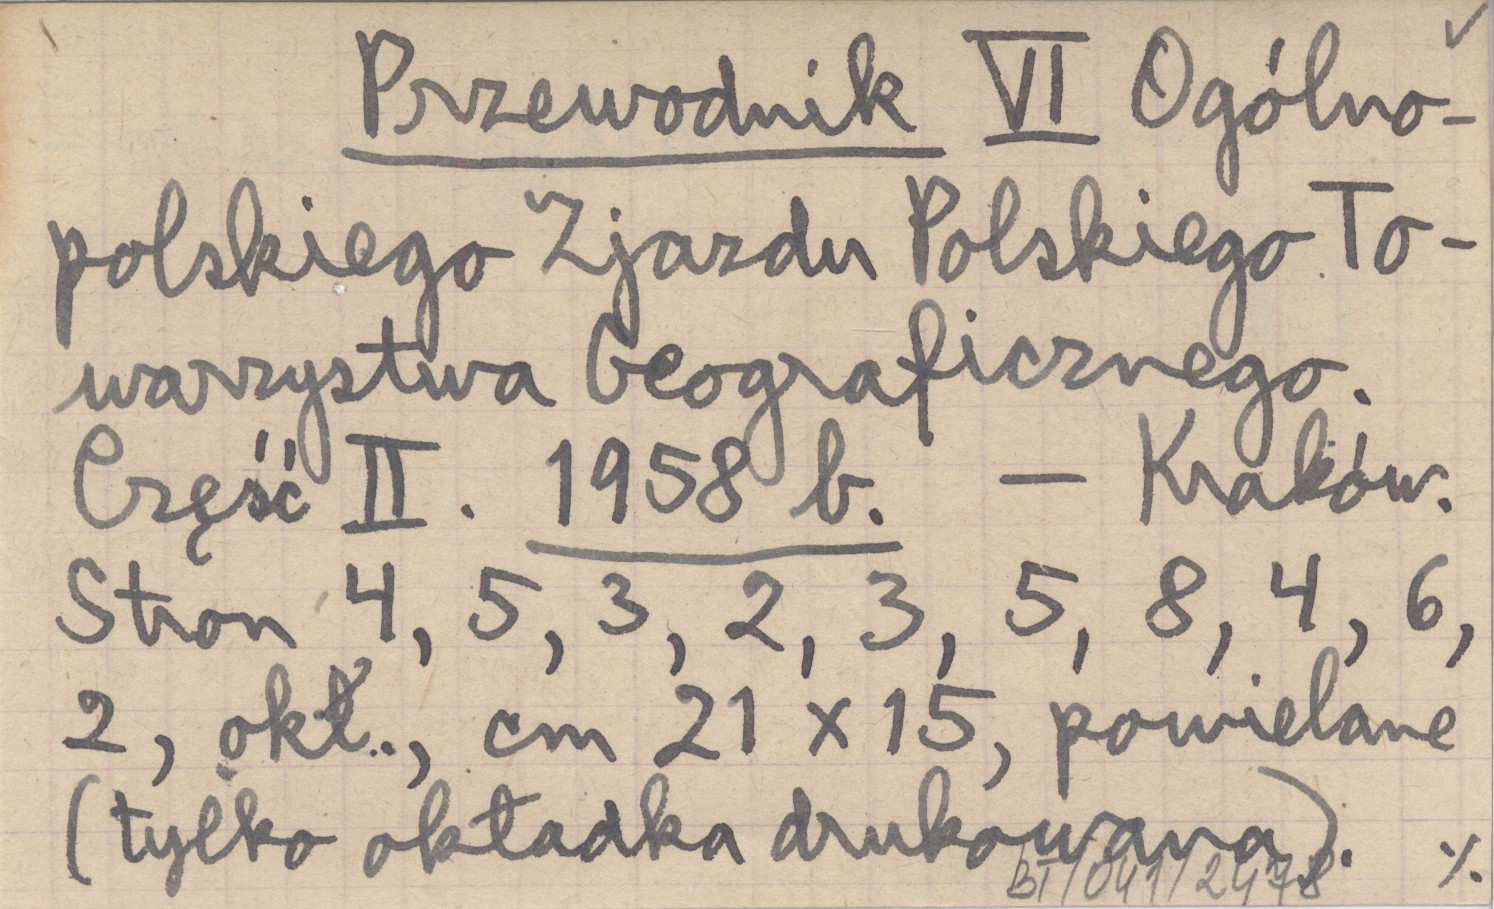 Przewodnik VI Ogólno-
polskiego Zjazdu Polskiego To-
warzystwa Geograficznego.
Część II. 1958 b. — Kraków.
Stron 4, 5, 3, 2, 3, 5, 8, 4, 6,
2, okł., cm 21 x 15, powielane
(tylko okładka drukowana). ٪.
BT/041/2478